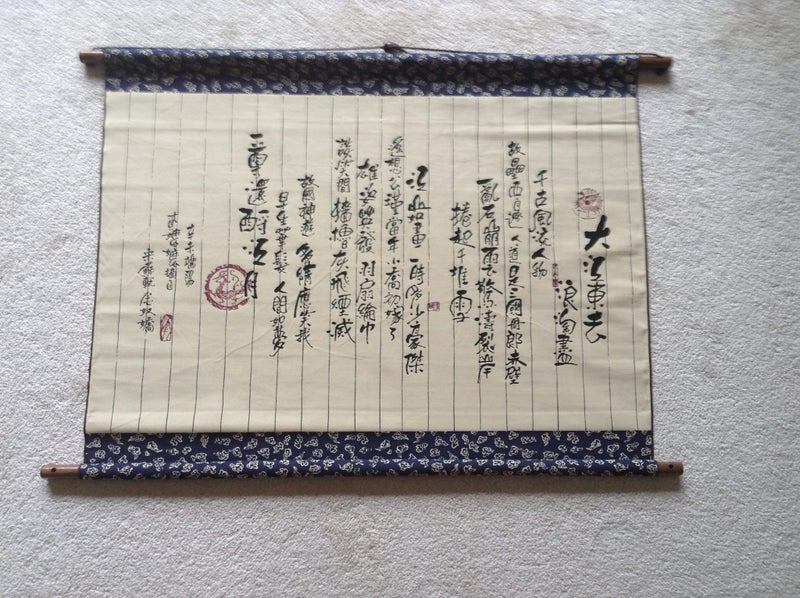 大江東去
浪淘盡
千古風流人物
故壘西邊人道是三國周郎赤壁
亂石崩雲驚濤裂岸
捲起千堆雪
江山如畫一時多少豪傑
遙想公瑾當年小喬初嫁了
雄姿英發羽扇綸巾
談笑間檣櫓灰飛煙滅
故國神遊多情應笑我
早生華髮人間如夢
一尊還酹江月